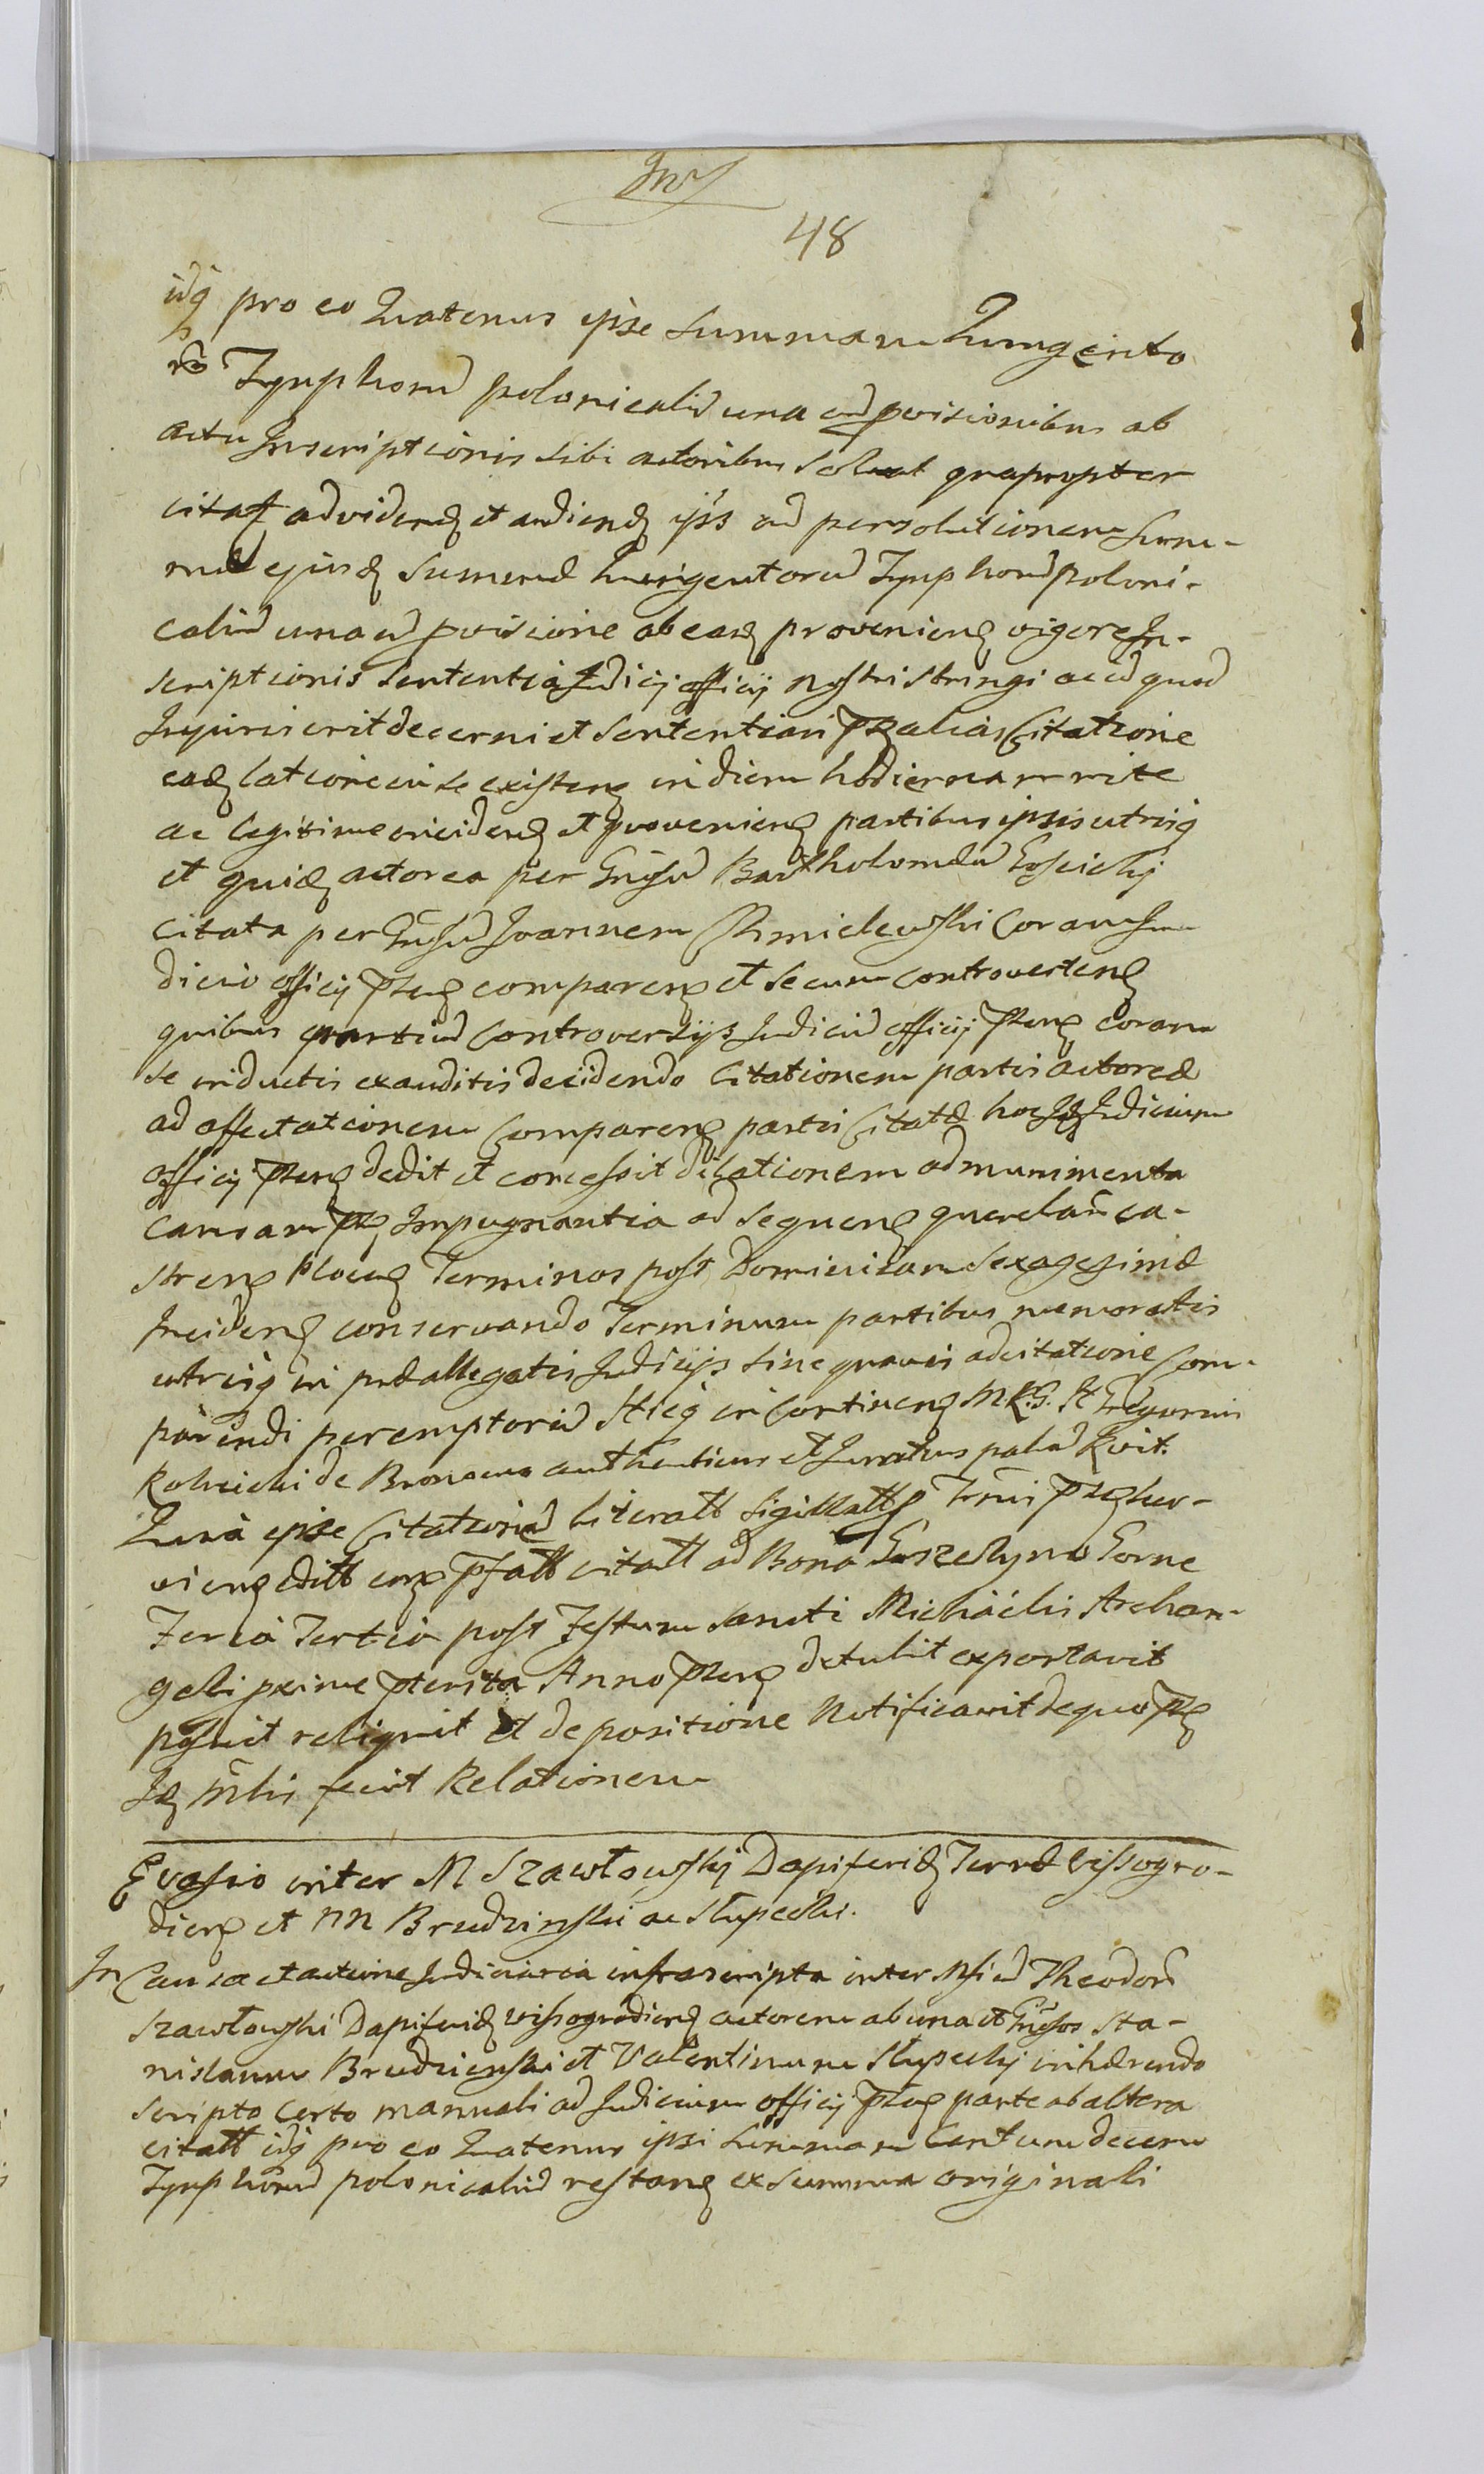 48
idq pro eo Quatenus ipse summam Quingento
rũ Tynphorũ polonicaliũ una cũ provisionibus ab
actu Inscriptionis sibi actoribus solvat quapropter
citatq ad videndq et audiendq ipss ad persolutionem sum-
mæ ejusdq summæ quingentorũ Tynphorũ poloni-
caliũ una cũ provisione ab eadq provenienq vigore In-
scriptionis sententia Judicij officij nostri stringi ac id quod
Injuris erit decerni et sententiari alias Citatione
eadq latiore in se existenq in diem hodiernam rite
ac legitime incidenq et provenienq partibus ipsis utrisq
et quidq actorea per Gñsũ Bartholomæũ Goscickij
citata per Gñsũ Joannem Chmielewski Coram Ju-
dicio officij pñtq comparenq et secum controvertenq
quibus partiũ Controversijs Judiciũ officij pñtq coram
se inductis exauditis decidendo Citationem partis actoreæ
ad affectationem Comparenq partis Citatæ hocce Judicium
officij pñtq dedit et concessit dilationem ad munimenta
causam Impugnantia ad sequenq querelarũ ca-
strenq plocenq Terminos post Dominicam Sexagesimæ
Incidenq conservando Terminum partibus memoratis
utrisq in præallegatis Judicijs sine quavis adcitatione Com-
parendi peremptoriũ Stieq in Continenq MRG. St Gregorius
Rolnicki de authenticus et Juratus palaũ
Quia ipse Citationũ literatt Sigillatt
editt citatt ad Bona Goszczyno Gorne
Feria Tertia post Festum Sancti Michaelis Archan-
geli pxime pterita Anno pñtq detulit exportavit
posuit reliquit et de positione Notificavit de quo
mhi fecit Relationem
Evasio inter M Szawłowskij Dapiferidq Terræ Vissogro-
dienq et NN Brudzinski ac Słupecki.
In Causa et actione Judiciaria infrascripta inter Mficũ Theodorũ
Szawłowski Dapiferidq Vissogrodienq actorem ab una et Gñsos Sta-
nislaum Brudzienski et Valentinum Słupeckij inhærendo
scripto Certo manuali ad Judicium officij pñtq parte ab altera
citatt idq pro eo Quatenus ipsi summam Centum decem
Tynphorũ polonicaliũ restanq ex summa originali